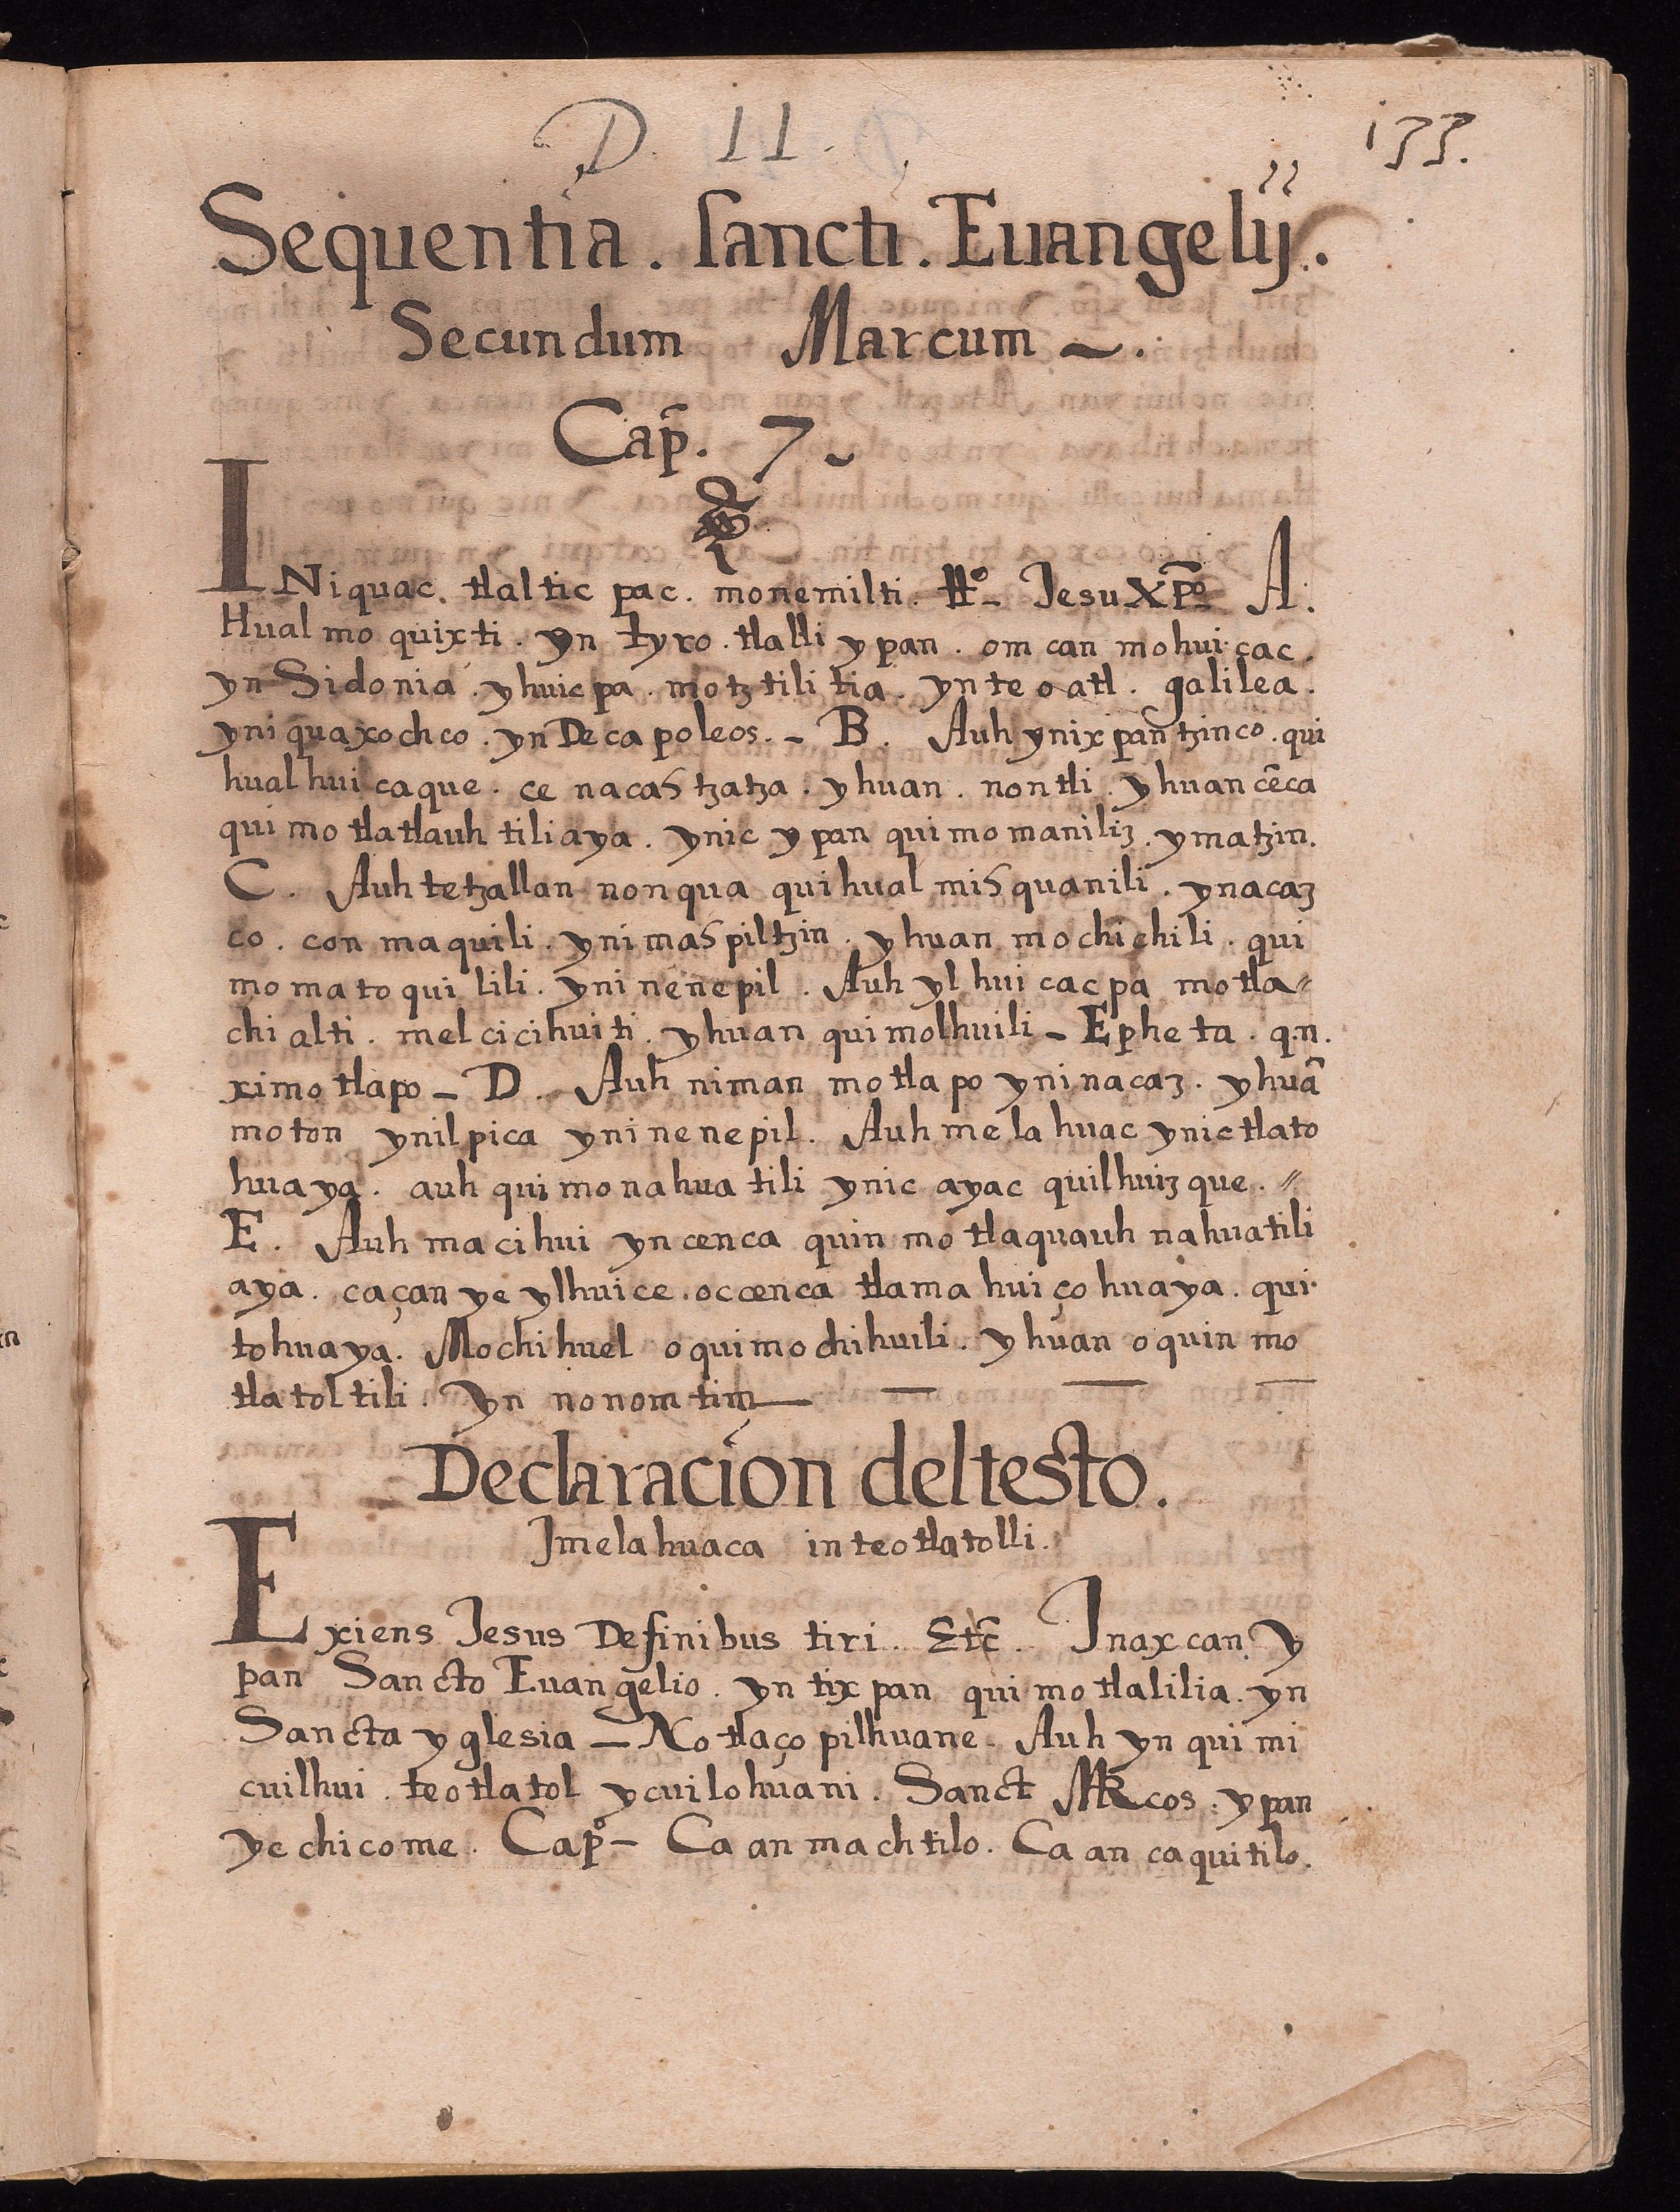 D. 11.
133.
Sequentia. sancti. Euangelij.
Secundum Marcum ~.
Cap̃. 7.
INiquac. tlaltic pac. monemilti. ttº- Jesu Xp̃o A.
Hual mo quixti. yn tyro. tlalli y pan. om can mohui cac.
yn Sidonia. y huic pa. motz tili tia. yn te o atl. galilea.
yni quaxoch co. yn De ca poleos. - B. Auh ynix pan tzinco. qui
hual hui ca que. ce nacas tzatza. y huan. non tli. y huan cẽca
qui mo tlatlauh tili aya. ynic y pan qui mo maniliz. y matzin.
C. Auh te tzallan nonqua qui hual mis quanili. y nacaz
co. con ma quili. yni mas piltzin. y huan mo chi chi li. qui
mo ma to qui lili. yni nene pil. Auh yl hui cac pa mo tla=
chi alti. mel ci ci hui ti. y huan qui molhuili - Epheta. q.n.
ximo tlapo - D. Auh niman mo tla po yni nacaz. y huã
mo ton ynil pica yni nene pil. Auh me la huac ynic tlato
hua ya. auh qui mo na hua tili ynic ayac quilhuiz que. =
E. Auh ma ci hui yn cenca quin mo tlaquauh nahuatili
aya. ca çan ye ylhui ce. oc cenca tlama hui ço hua ya. qui
to hua ya. Mochi huel o qui mo chi huili. y huan o quin mo
tla tol tili. yn no nom tim
Declaracion del testo.
Jmela huaca in teo tlatolli.
Exiens Jesus De finibus tiri. Etc̃. Jn ax can y
pan Sancto Euangelio. yn tix pan qui mo tlalilia. yn
Sancta yglesia - No tlaço pilhuane. Auh yn qui mi
cuilhui. teo tlatol ycuilo huani. Sanct MRcos: y pan
yc chicome. Capº- Ca an machtilo. Ca an caquitilo.